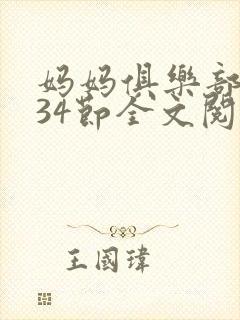 妈妈俱樂部
34節全文閱
王國瑋